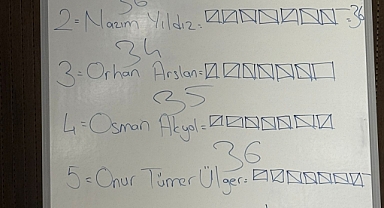 36
2= Nazım Yıldız= =36
34
3= Orhan Arslan=
35
4= Osman Akyol=
36
5= Onur Tümer Ülger=